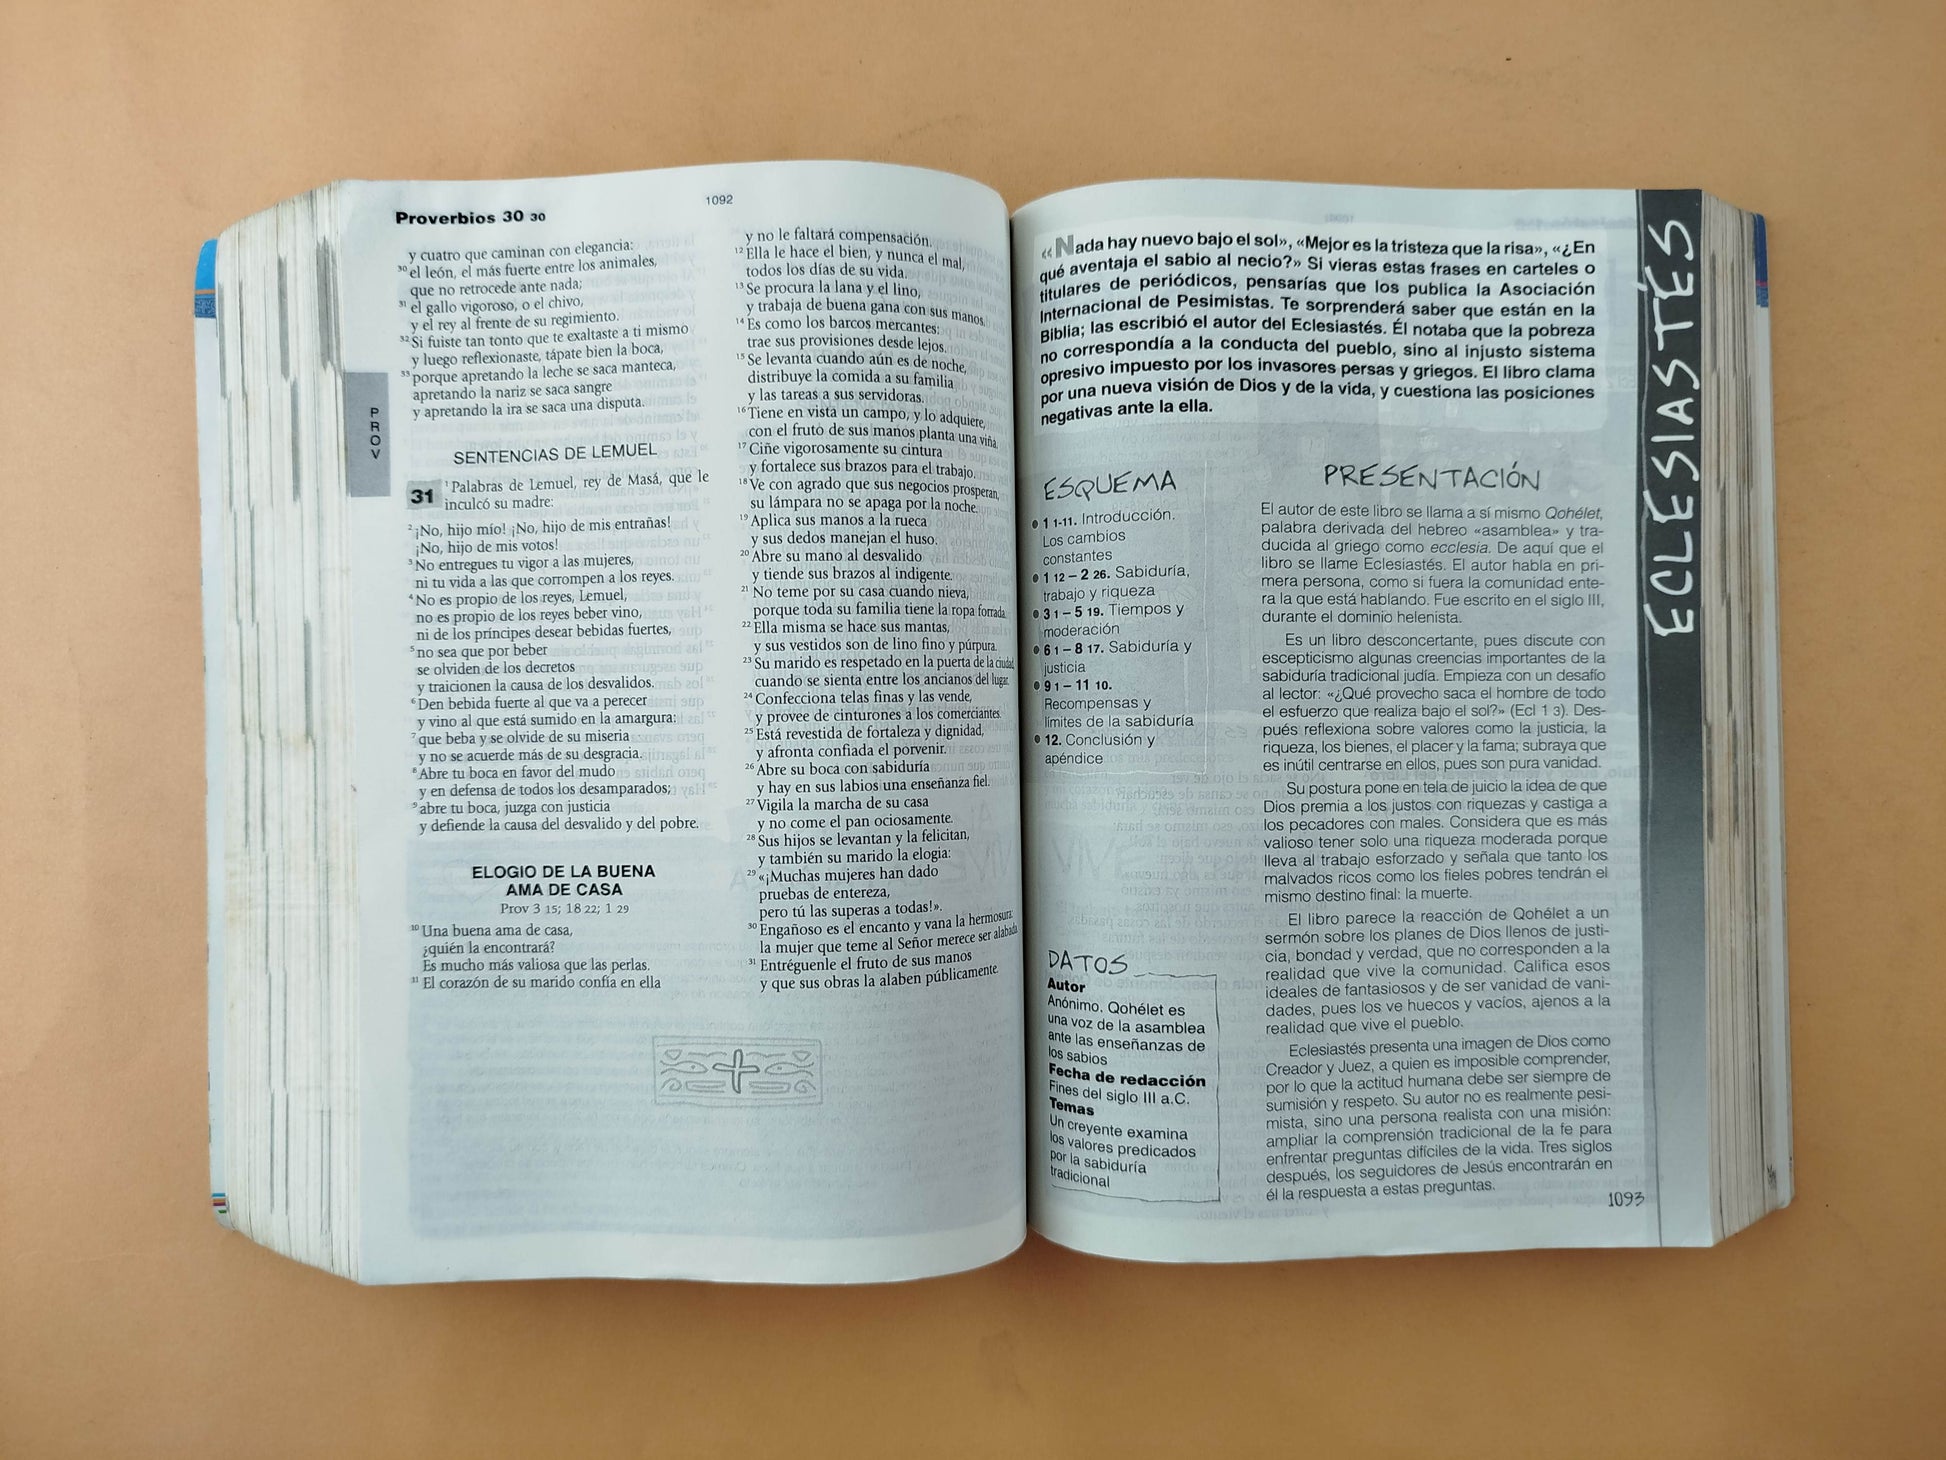 1092
Proverbios 30 30
y cuatro que caminan con elegancia:
30 el león, el más fuerte entre los animales,
que no retrocede ante nada;
31 el gallo vigoroso, o el chivo,
y el rey al frente de su regimiento.
32 Si fuiste tan tonto que te exaltaste a ti mismo
y luego reflexionaste, tápate bien la boca,
33 porque apretando la leche se saca manteca,
apretando la nariz se saca sangre
y apretando la ira se saca una disputa.
PROV
SENTENCIAS DE LEMUEL
31 1 Palabras de Lemuel, rey de Masá, que le
inculcó su madre:
2 ¡No, hijo mío! ¡No, hijo de mis entrañas!
¡No, hijo de mis votos!
3 No entregues tu vigor a las mujeres,
ni tu vida a las que corrompen a los reyes.
4 No es propio de los reyes, Lemuel,
no es propio de los reyes beber vino,
ni de los príncipes desear bebidas fuertes,
5 no sea que por beber
se olviden de los decretos
y traicionen la causa de los desvalidos.
6 Den bebida fuerte al que va a perecer
y vino al que está sumido en la amargura:
7 que beba y se olvide de su miseria
y no se acuerde más de su desgracia.
8 Abre tu boca en favor del mudo
y en defensa de todos los desamparados;
9 abre tu boca, juzga con justicia
y defiende la causa del desvalido y del pobre.
ELOGIO DE LA BUENA
AMA DE CASA
Prov 3 15; 18 22; 1 29
10 Una buena ama de casa,
¿quién la encontrará?
Es mucho más valiosa que las perlas.
11 El corazón de su marido confía en ella
y no le faltará compensación.
12 Ella le hace el bien, y nunca el mal,
todos los días de su vida.
13 Se procura la lana y el lino,
y trabaja de buena gana con sus manos.
14 Es como los barcos mercantes:
trae sus provisiones desde lejos.
15 Se levanta cuando aún es de noche,
distribuye la comida a su familia
y las tareas a sus servidoras.
16 Tiene en vista un campo, y lo adquiere,
con el fruto de sus manos planta una viña.
17 Ciñe vigorosamente su cintura
y fortalece sus brazos para el trabajo.
18 Ve con agrado que sus negocios prosperan,
su lámpara no se apaga por la noche.
19 Aplica sus manos a la rueca
y sus dedos manejan el huso.
20 Abre su mano al desvalido
y tiende sus brazos al indigente.
21 No teme por su casa cuando nieva,
porque toda su familia tiene la ropa forrada.
22 Ella misma se hace sus mantas,
y sus vestidos son de lino fino y púrpura.
23 Su marido es respetado en la puerta de la ciudad,
cuando se sienta entre los ancianos del lugar.
24 Confecciona telas finas y las vende,
y provee de cinturones a los comerciantes.
25 Está revestida de fortaleza y dignidad,
y afronta confiada el porvenir.
26 Abre su boca con sabiduría
y hay en sus labios una enseñanza fiel.
27 Vigila la marcha de su casa
y no come el pan ociosamente.
28 Sus hijos se levantan y la felicitan,
y también su marido la elogia:
29 «¡Muchas mujeres han dado
pruebas de entereza,
pero tú las superas a todas!».
30 Engañoso es el encanto y vana la hermosura:
la mujer que teme al Señor merece ser alabada.
31 Entréguenle el fruto de sus manos
y que sus obras la alaben públicamente.
«Nada hay nuevo bajo el sol», «Mejor es la tristeza que la risa», «¿En
qué aventaja el sabio al necio?» Si vieras estas frases en carteles o
titulares de periódicos, pensarías que los publica la Asociación
Internacional de Pesimistas. Te sorprenderá saber que están en la
Biblia; las escribió el autor del Eclesiastés. Él notaba que la pobreza
no correspondía a la conducta del pueblo, sino al injusto sistema
opresivo impuesto por los invasores persas y griegos. El libro clama
por una nueva visión de Dios y de la vida, y cuestiona las posiciones
negativas ante la ella.
ESQUEMA
1 1-11. Introducción.
Los cambios
constantes
1 12 – 2 26. Sabiduría,
trabajo y riqueza
3 1 – 5 19. Tiempos y
moderación
6 1 – 8 17. Sabiduría y
justicia
9 1 – 11 10.
Recompensas y
límites de la sabiduría
12. Conclusión y
apéndice
DATOS
Autor
Anónimo. Qohélet es
una voz de la asamblea
ante las enseñanzas de
los sabios
Fecha de redacción
Fines del siglo III a.C.
Temas
Un creyente examina
los valores predicados
por la sabiduría
tradicional
PRESENTACIÓN
El autor de este libro se llama a sí mismo Qohélet,
palabra derivada del hebreo «asamblea» y tra-
ducida al griego como ecclesia. De aquí que el
libro se llame Eclesiastés. El autor habla en pri-
mera persona, como si fuera la comunidad ente-
ra la que está hablando. Fue escrito en el siglo III,
durante el dominio helenista.
Es un libro desconcertante, pues discute con
escepticismo algunas creencias importantes de la
sabiduría tradicional judía. Empieza con un desafío
al lector: «¿Qué provecho saca el hombre de todo
el esfuerzo que realiza bajo el sol?» (Ecl 1 3). Des-
pués reflexiona sobre valores como la justicia, la
riqueza, los bienes, el placer y la fama; subraya que
es inútil centrarse en ellos, pues son pura vanidad.
Su postura pone en tela de juicio la idea de que
Dios premia a los justos con riquezas y castiga a
los pecadores con males. Considera que es más
valioso tener solo una riqueza moderada porque
lleva al trabajo esforzado y señala que tanto los
malvados ricos como los fieles pobres tendrán el
mismo destino final: la muerte.
El libro parece la reacción de Qohélet a un
sermón sobre los planes de Dios llenos de justi-
cia, bondad y verdad, que no corresponden a la
realidad que vive la comunidad. Califica esos
ideales de fantasiosos y de ser vanidad de vani-
dades, pues los ve huecos y vacíos, ajenos a la
realidad que vive el pueblo.
Eclesiastés presenta una imagen de Dios como
Creador y Juez, a quien es imposible comprender,
por lo que la actitud humana debe ser siempre de
sumisión y respeto. Su autor no es realmente pesi-
mista, sino una persona realista con una misión:
ampliar la comprensión tradicional de la fe para
enfrentar preguntas difíciles de la vida. Tres siglos
después, los seguidores de Jesús encontrarán en
él la respuesta a estas preguntas.
1093
ECLESIASTÉS